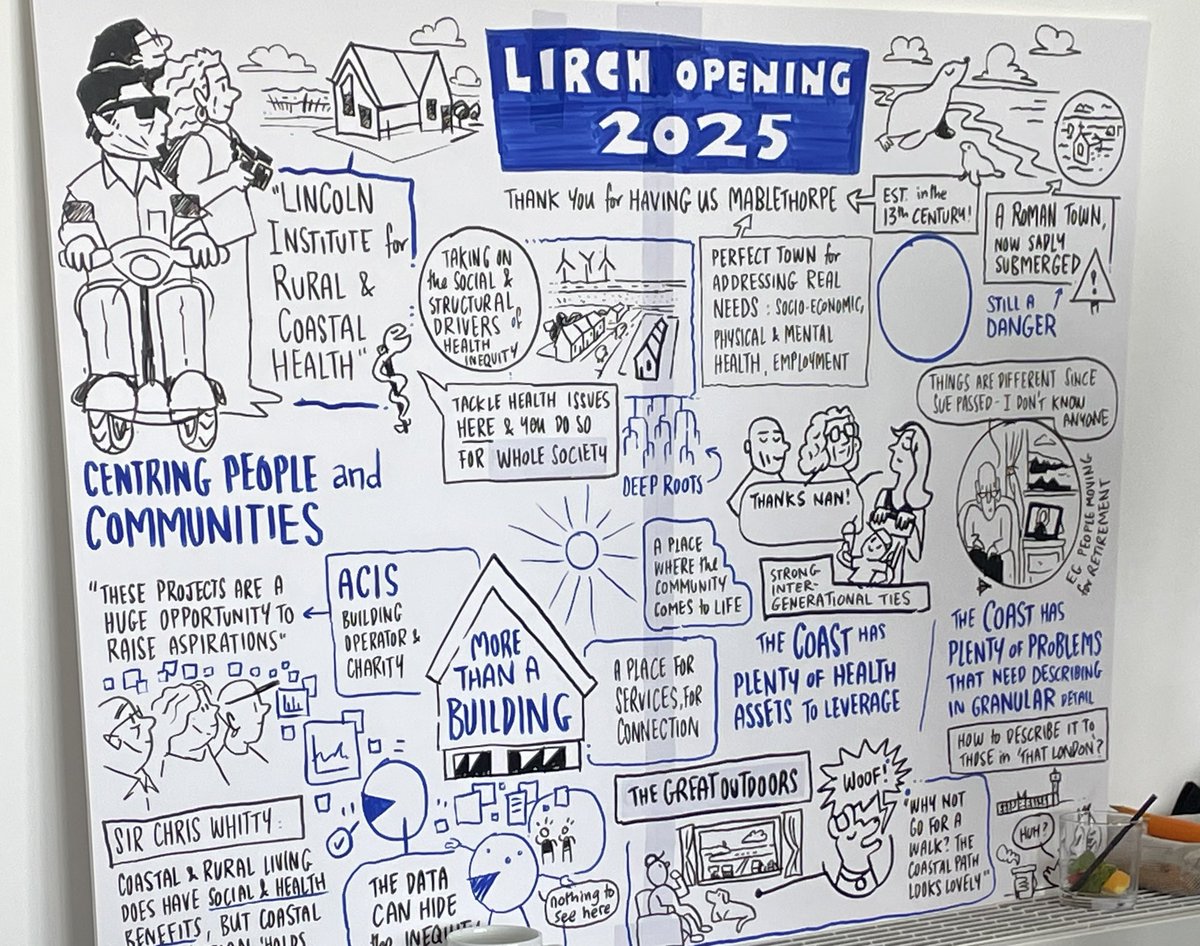 LIRCH OPENING
2025
THANK YOU for HAVING US MABLETHORPE
EST. in the
13th CENTURY!
A ROMAN TOWN,
NOW SADLY
SUBMERGED
STILL A
DANGER
"LINCOLN
INSTITUTE for
RURAL &
COASTAL
HEALTH"
TAKING ON
the SOCIAL &
STRUCTURAL
DRIVERS of
HEALTH
INEQUITY
PERFECT TOWN for
ADDRESSING REAL
NEEDS: SOCIO-ECONOMIC,
PHYSICAL & MENTAL
HEALTH, EMPLOYMENT
TACKLE HEALTH ISSUES
HERE & YOU DO SO
FOR WHOLE SOCIETY
DEEP ROOTS
THINGS ARE DIFFERENT SINCE
SUE PASSED - I DON'T KNOW
ANYONE
EG PEOPLE MOVING
for RETIREMENT
CENTRING PEOPLE and
COMMUNITIES
THANKS NAN!
STRONG
INTER-
GENERATIONAL TIES
A PLACE
WHERE the
COMMUNITY
COMES to LIFE
"THESE PROJECTS ARE A
HUGE OPPORTUNITY TO
RAISE ASPIRATIONS"
ACIS
BUILDING
OPERATOR &
CHARITY
MORE
THAN A
BUILDING
A PLACE FOR
SERVICES, FOR
CONNECTION
THE COAST HAS
PLENTY of HEALTH
ASSETS TO LEVERAGE
THE COAST HAS
PLENTY of PROBLEMS
THAT NEED DESCRIBING
IN GRANULAR DETAIL
HOW to DESCRIBE IT TO
THOSE in 'THAT LONDON'?
HUH?
THE GREAT OUTDOORS
WOOF!
"WHY NOT
GO FOR A
WALK? THE
COASTAL PATH
LOOKS LOVELY"
SIR CHRIS WHITTY:
COASTAL & RURAL LIVING
DOES HAVE SOCIAL & HEALTH
BENEFITS, BUT COASTAL
THE DATA
CAN HIDE
the
nothing to
see here